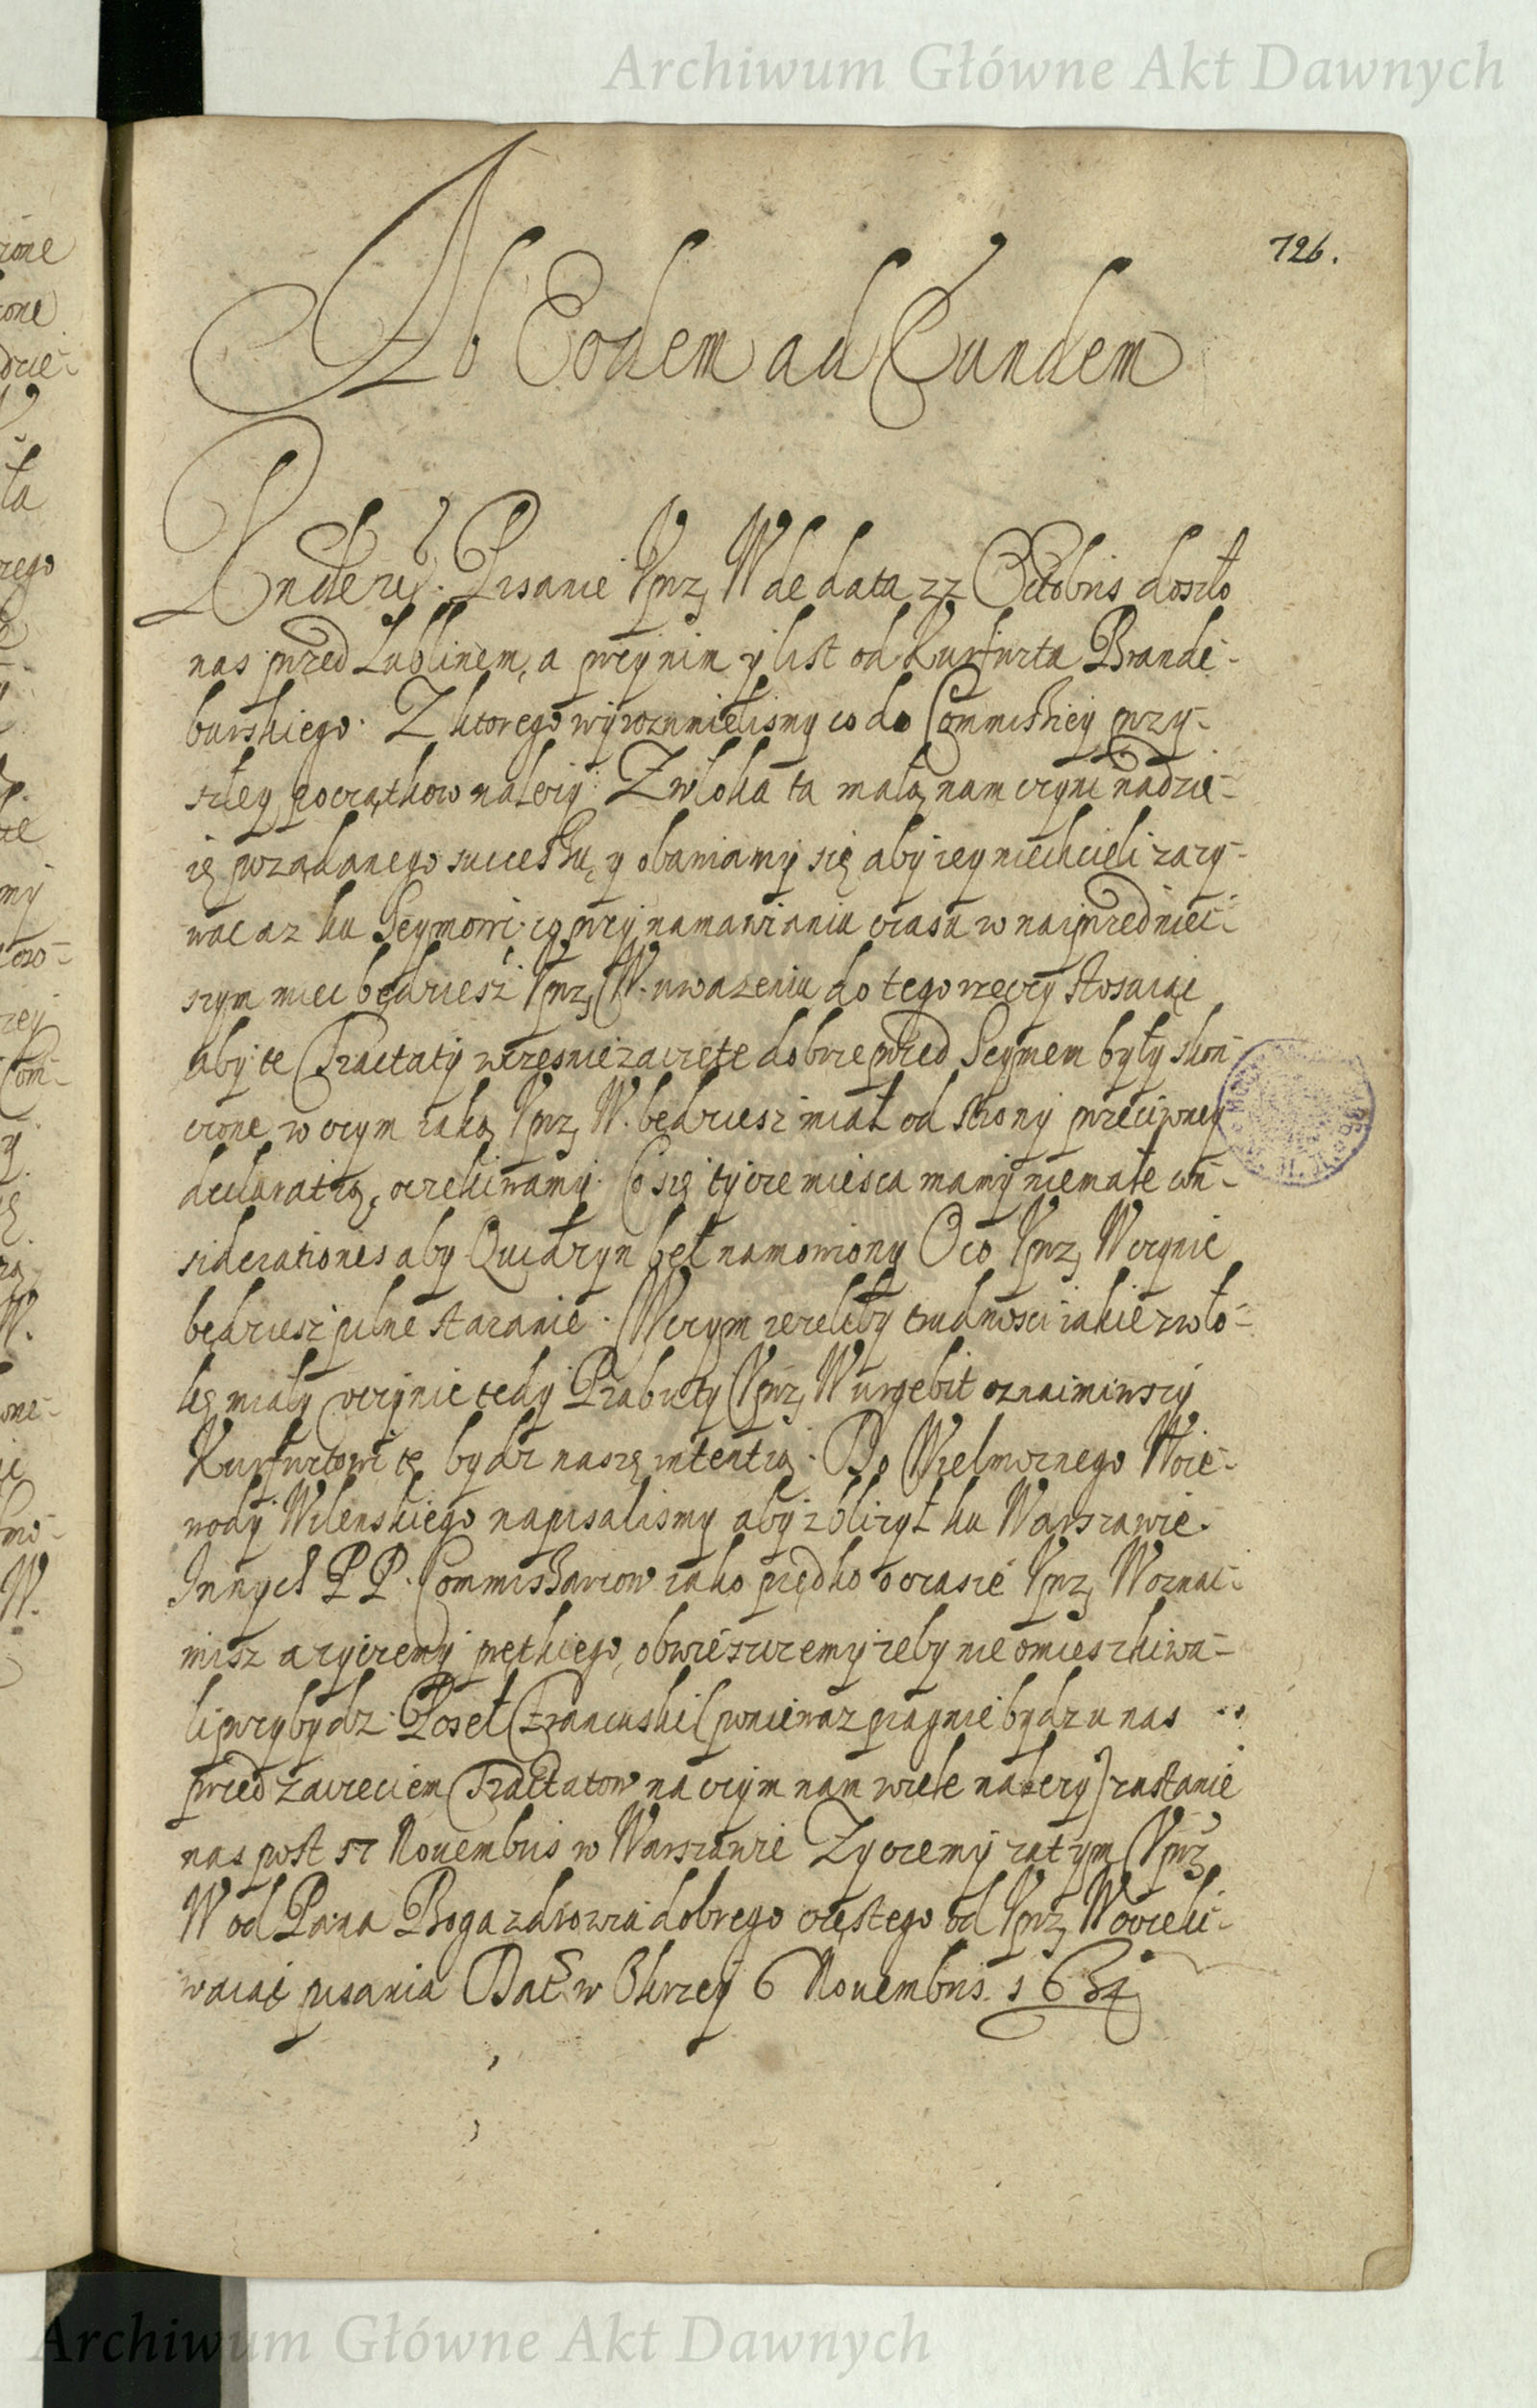 Archiwum Główne Akt Dawnych
726.
Ab Eodem ad Eundem
Pisanie Uprz W de data 22 Octobris doszło
nas przed Lublinem, a przy nim y list od Kurfirta Brande-
burskiego. Z ktorego wyrozumielismy co do Commissiey przy-
szłey początkow należy. Zwłoka ta małą nam czyni nadzie-
ię pożądanego successu, y obawiamy się aby iey niechcieli zazy-
wac az ku Seymowi. co przy namawianiu czasu w naiprzedniei-
szym miec będziesz Uprz W. uwazeniu do tego rzeczy stosuiąc
aby te Tractaty wczesnie zaczęte dobrze przed Seymem były skon-
czone w czym iaką Uprz W. będziesz miał od strony przeciwney
declaratią, oczekiwamy. Co się tycze mieisca mamy niemałe con-
siderationes aby Quidzyn beł namowiony O co Uprz W czynic
będziesz pilne staranie. W czym iezeliby trudnosci iakie zwło-
kę miały uczynic tedy Prabuty Uprz W urgebit oznaimiwszy
Kurfirtowi tę bydz naszę intentią. Do Wielmoznego Woie-
wody Wilenskiego napisalismy aby zblizył ku Warszawie.
Innych PP. Commissarzow iako prędko o czasie Uprz W oznai-
misz a zyczemy prętkiego, obwiesczemy zeby nie omieszkiwa-
li przybydz. Poseł Francuski (poniewaz pragnie bydz u nas
przed zaczęciem Tractatow na czym nam wiele nalezy) zastanie
nas post 17 Nouembris w Warszawie Zyczemy zatym Uprz
W od Pana Boga zdrowia dobrego częstego od Uprz W oczeki-
waiąc pisania Dat w 6 Nouembris. 1634
Archiwum Główne Akt Dawnych